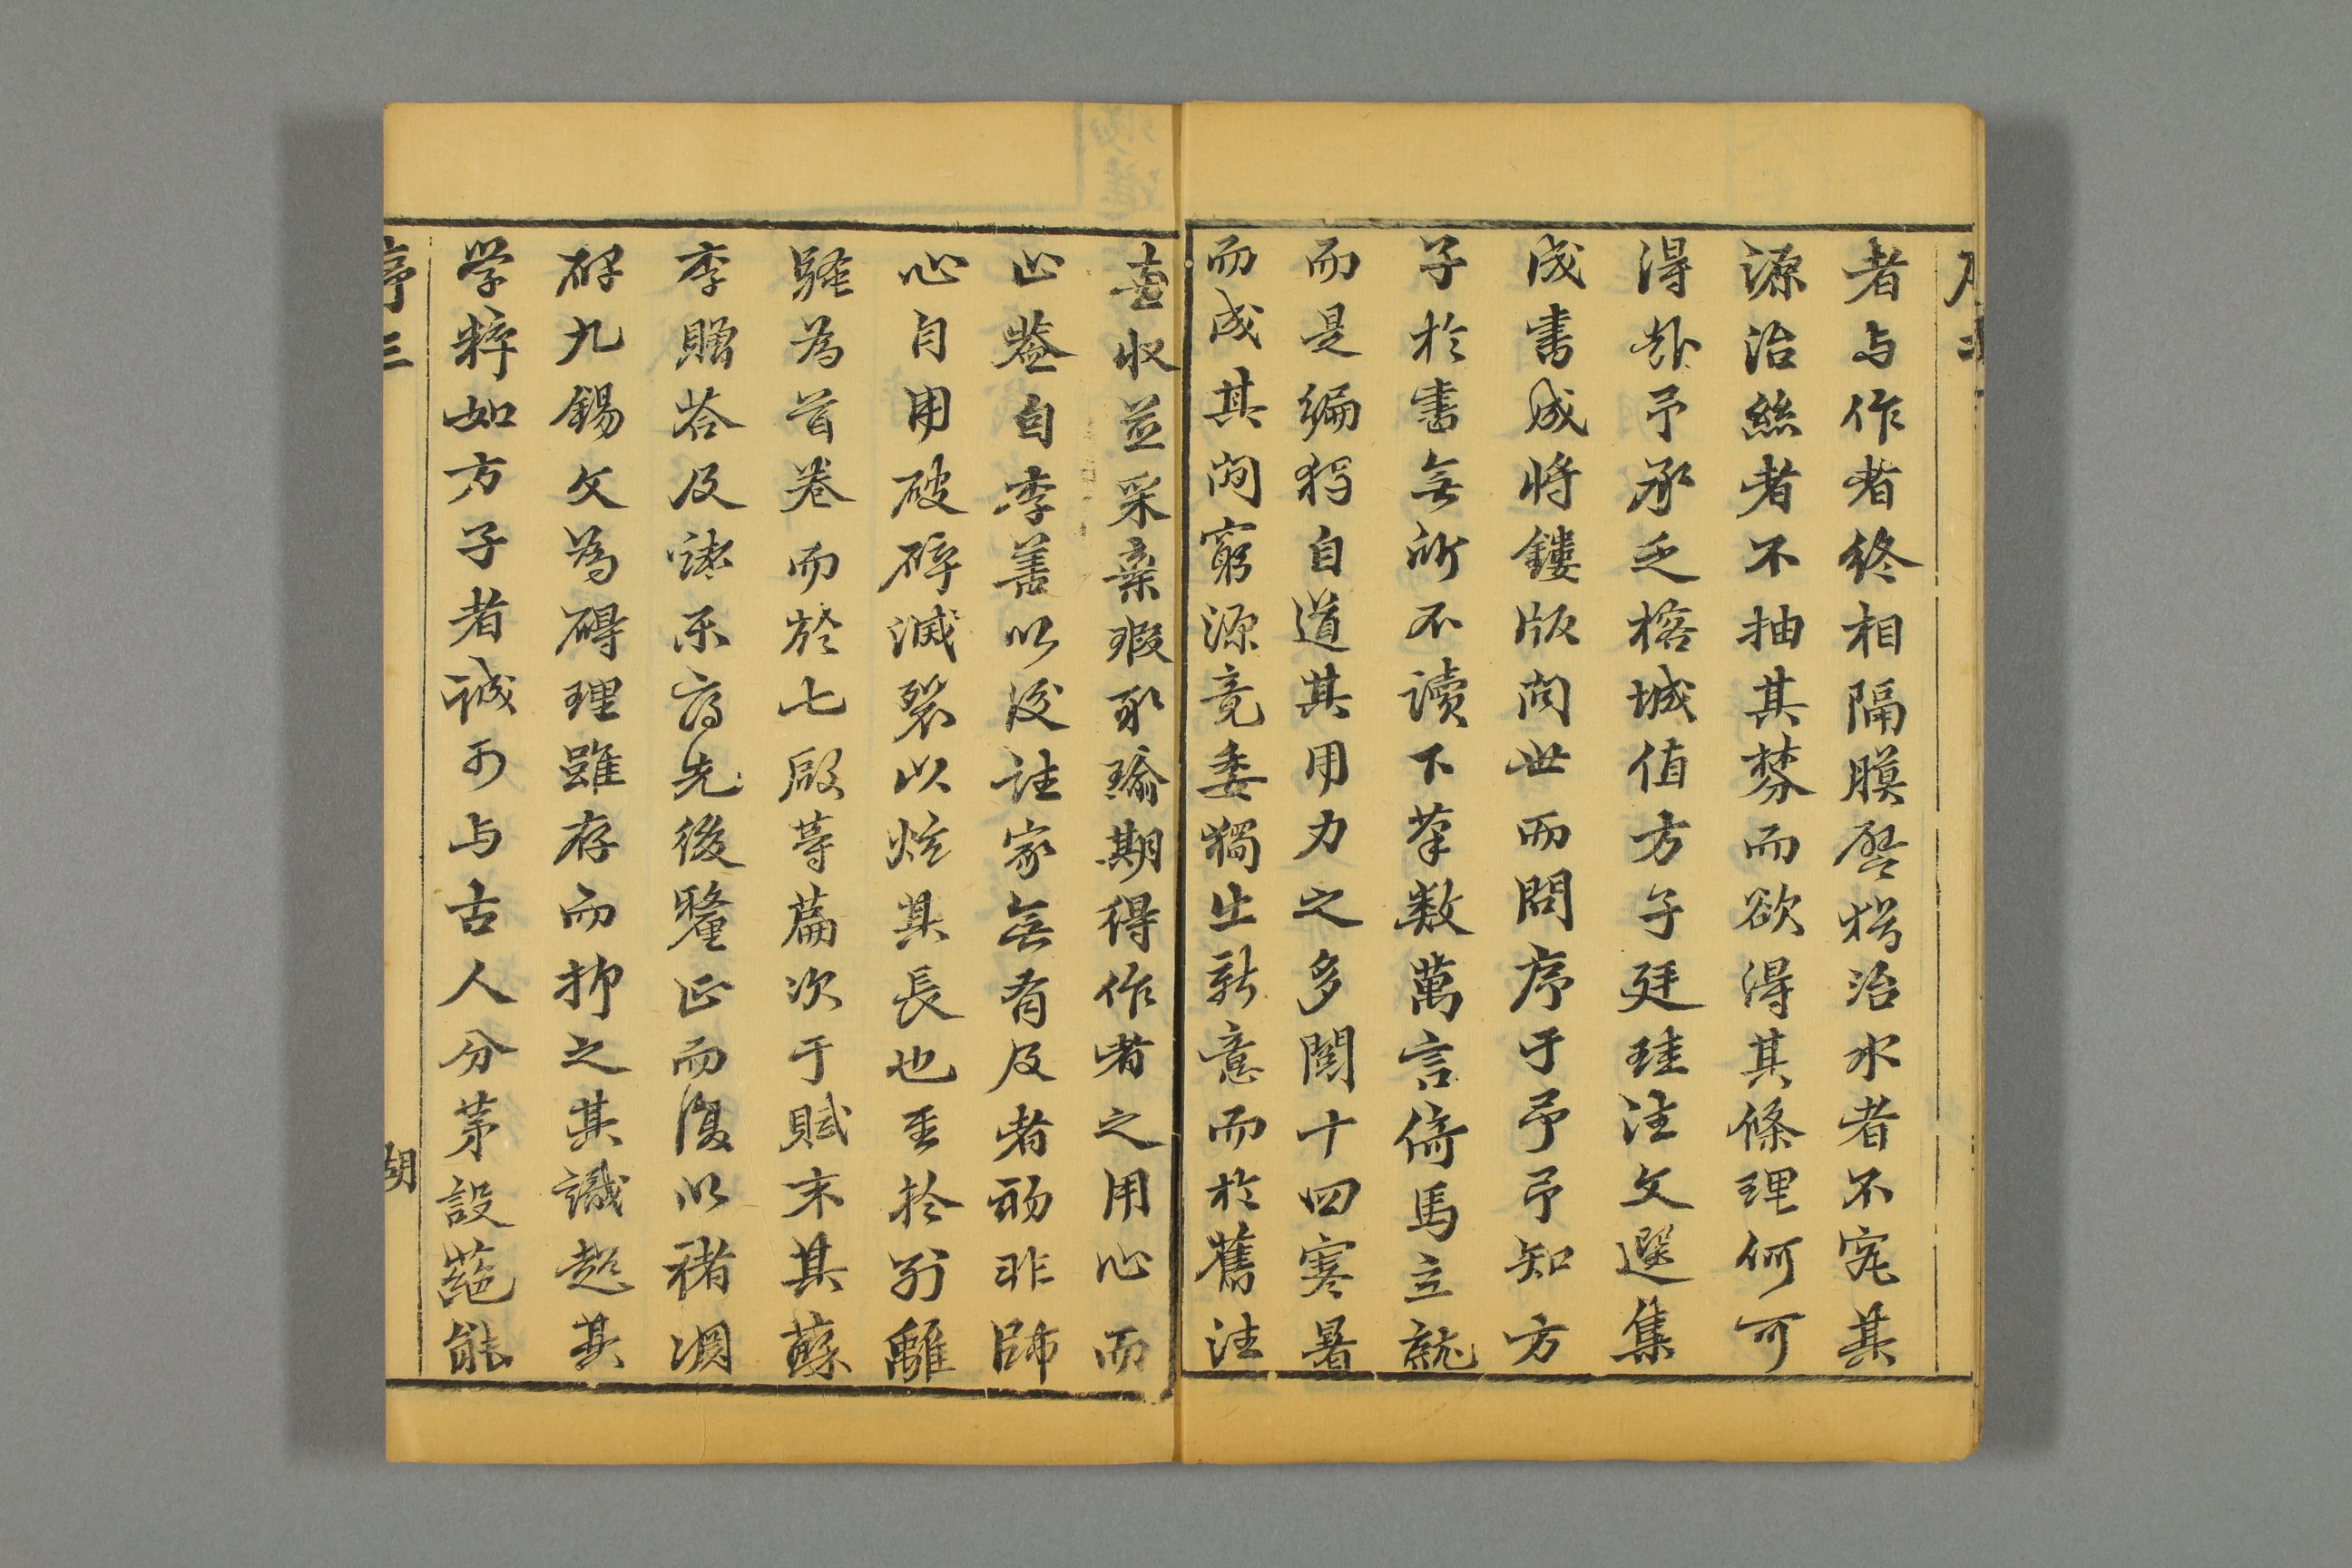 者与作者終相隔膜譬猶治水者不究其
源治絲者不抽其棼而欲得其條理何可
得歟予承乏榕城值方子廷珪注文選集
成書成将鏤版问世而問序于予予知方
子於書無所不读下筆数萬言倚馬立就
而是编猶自道其用力之多閱十四寒暑
而成其间窮源竟委獨出新意而於舊注
盡收並采棄瑕取瑜期得作者之用心而
止蓋自李善以後註家無有及者初非師
心自用破碎滅裂以炫其長也至於列離
騷為首卷而於七啟等篇次于賦末其蘇
李贈答及諸樂府先後釐正而復以褚淵
碑九錫文為碍理雖存而抑之其識超其
学粹如方子者诚可与古人分茅設蕝能
序三
胡